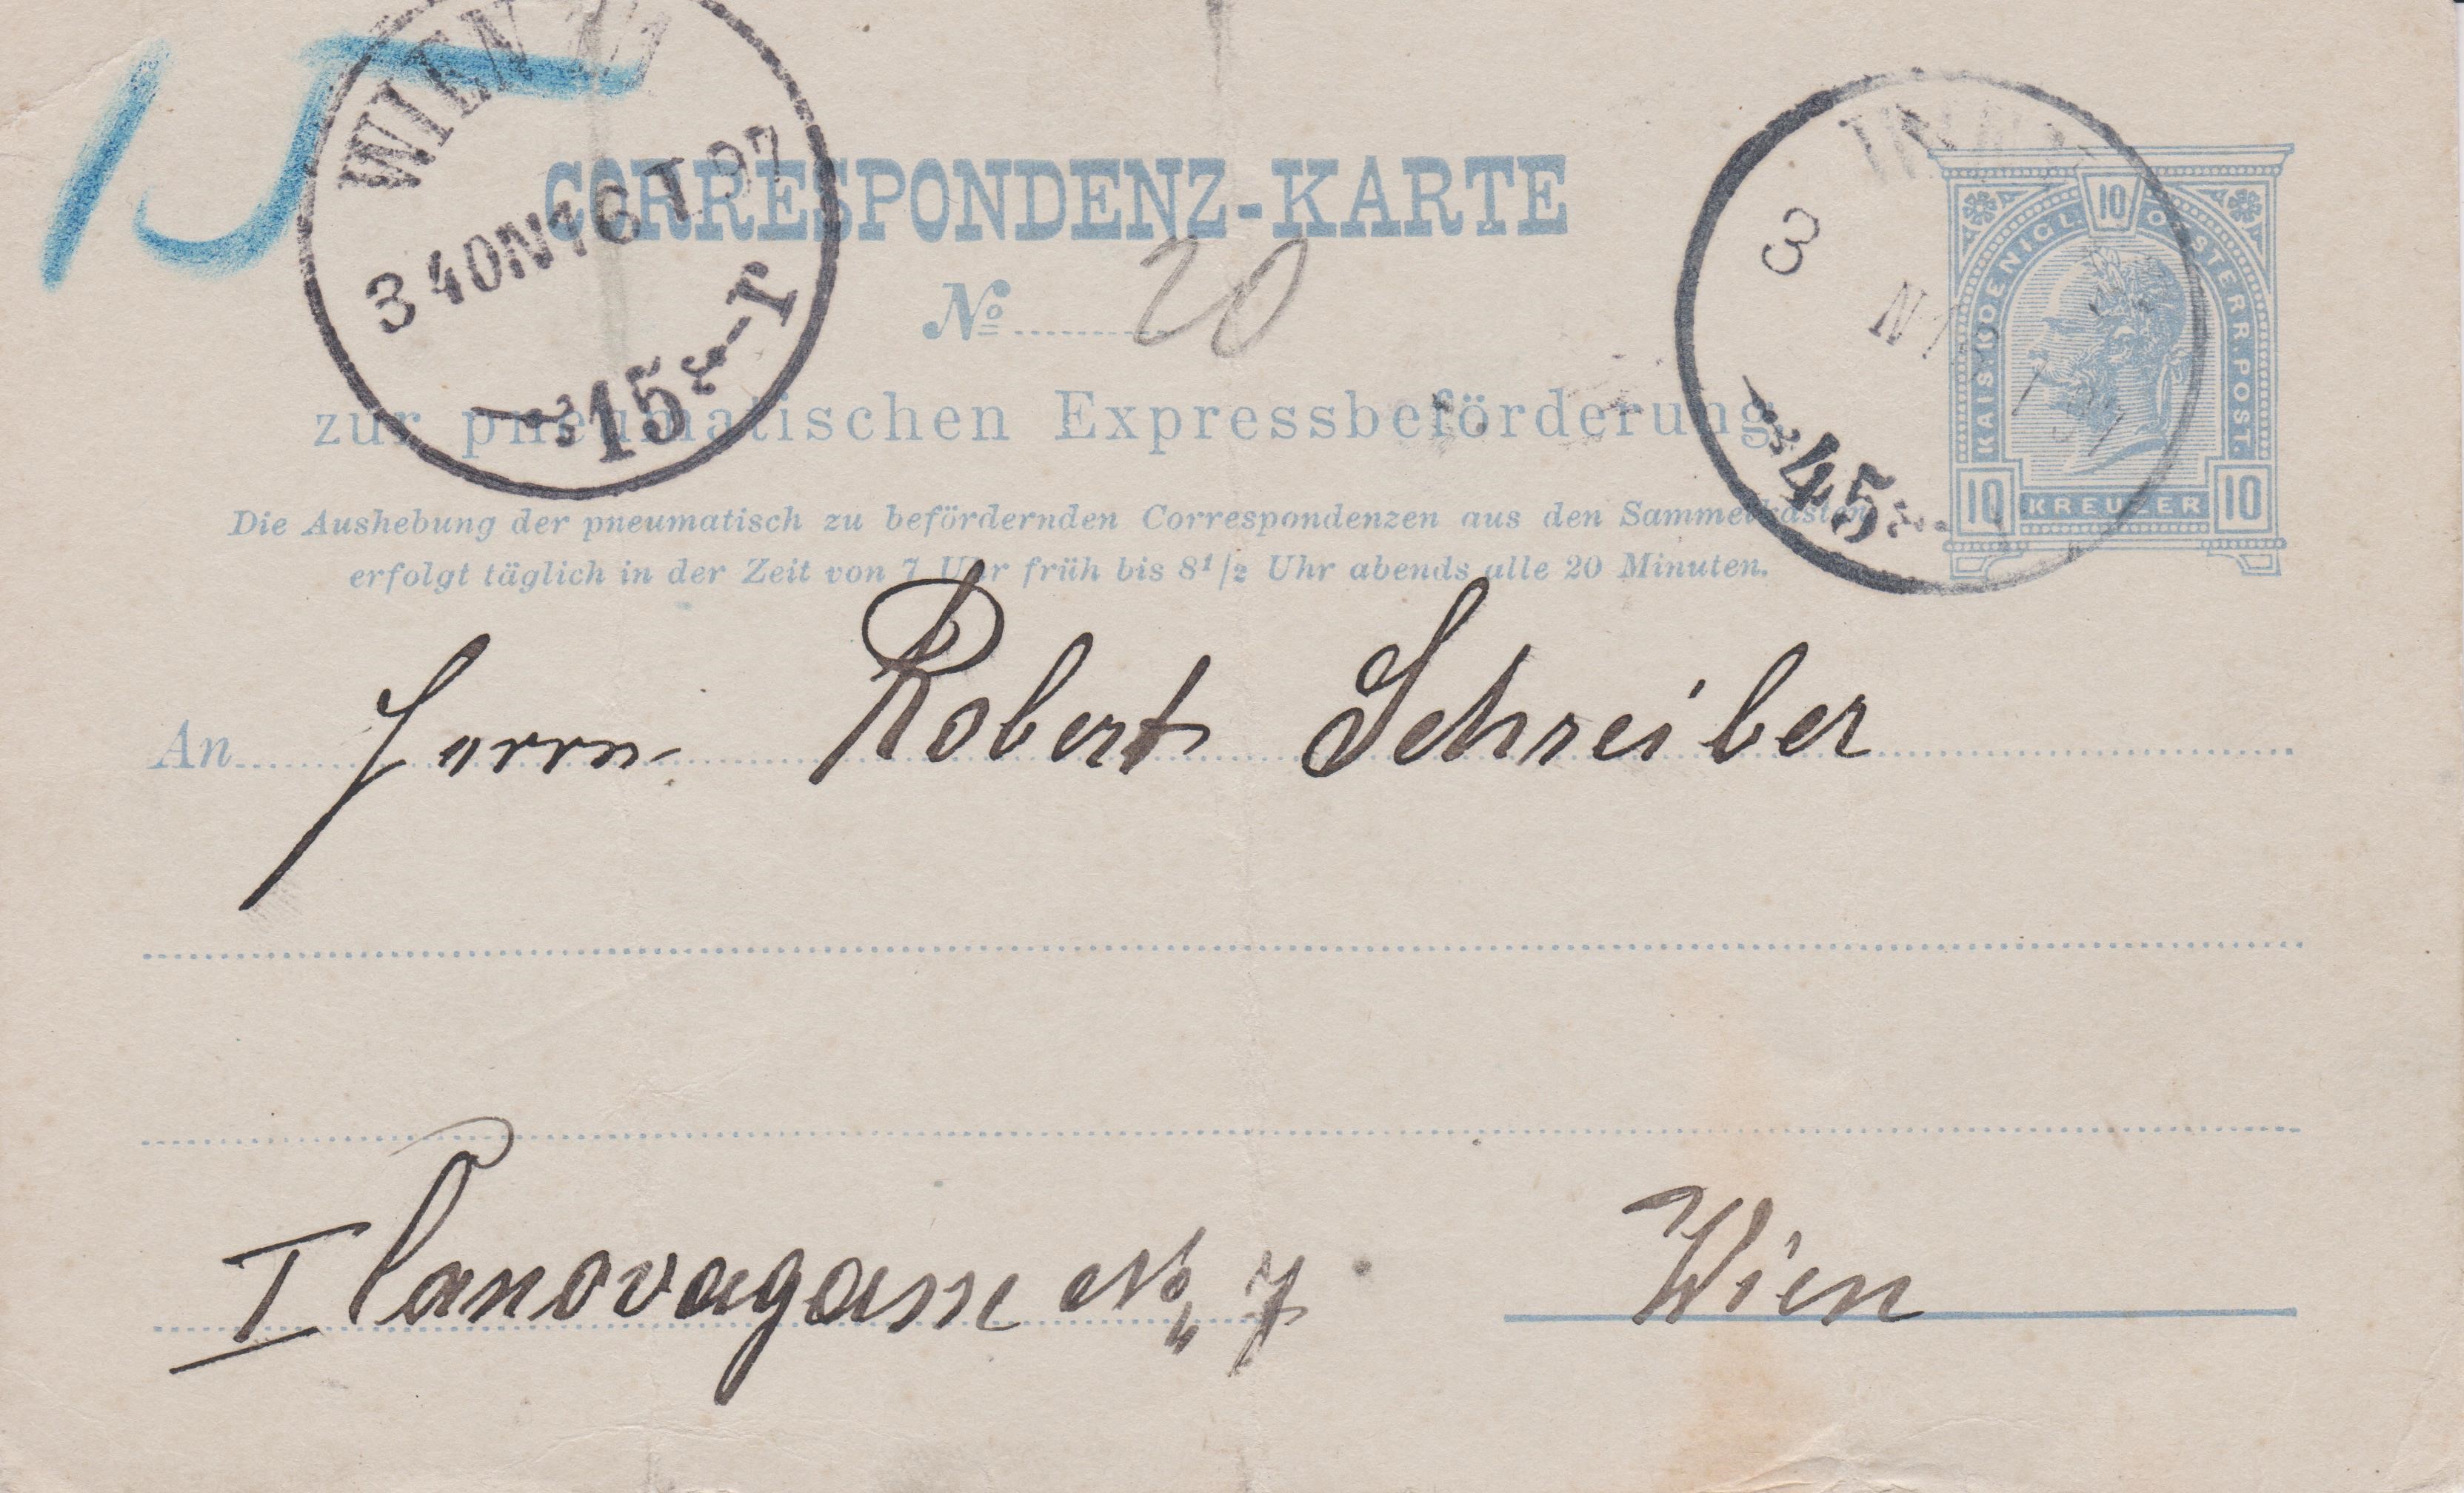 15
WIEN 1/1
3 40N 16 I 97
15
CORRESPONDENZ-KARTE
No 20
zur pneumatischen Expressbeförderung
Die Aushebung der pneumatisch zu befördernden Correspondenzen aus den Sammelkästen
erfolgt täglich in der Zeit von 7 Uhr früh bis 8 1/2 Uhr abends alle 20 Minuten.
3 N
45
KAIS. KOENIGL. OESTERR. POST.
10
10 KREUZER 10
An Herrn Robert Schreiber
I Canovagasse No 7 Wien